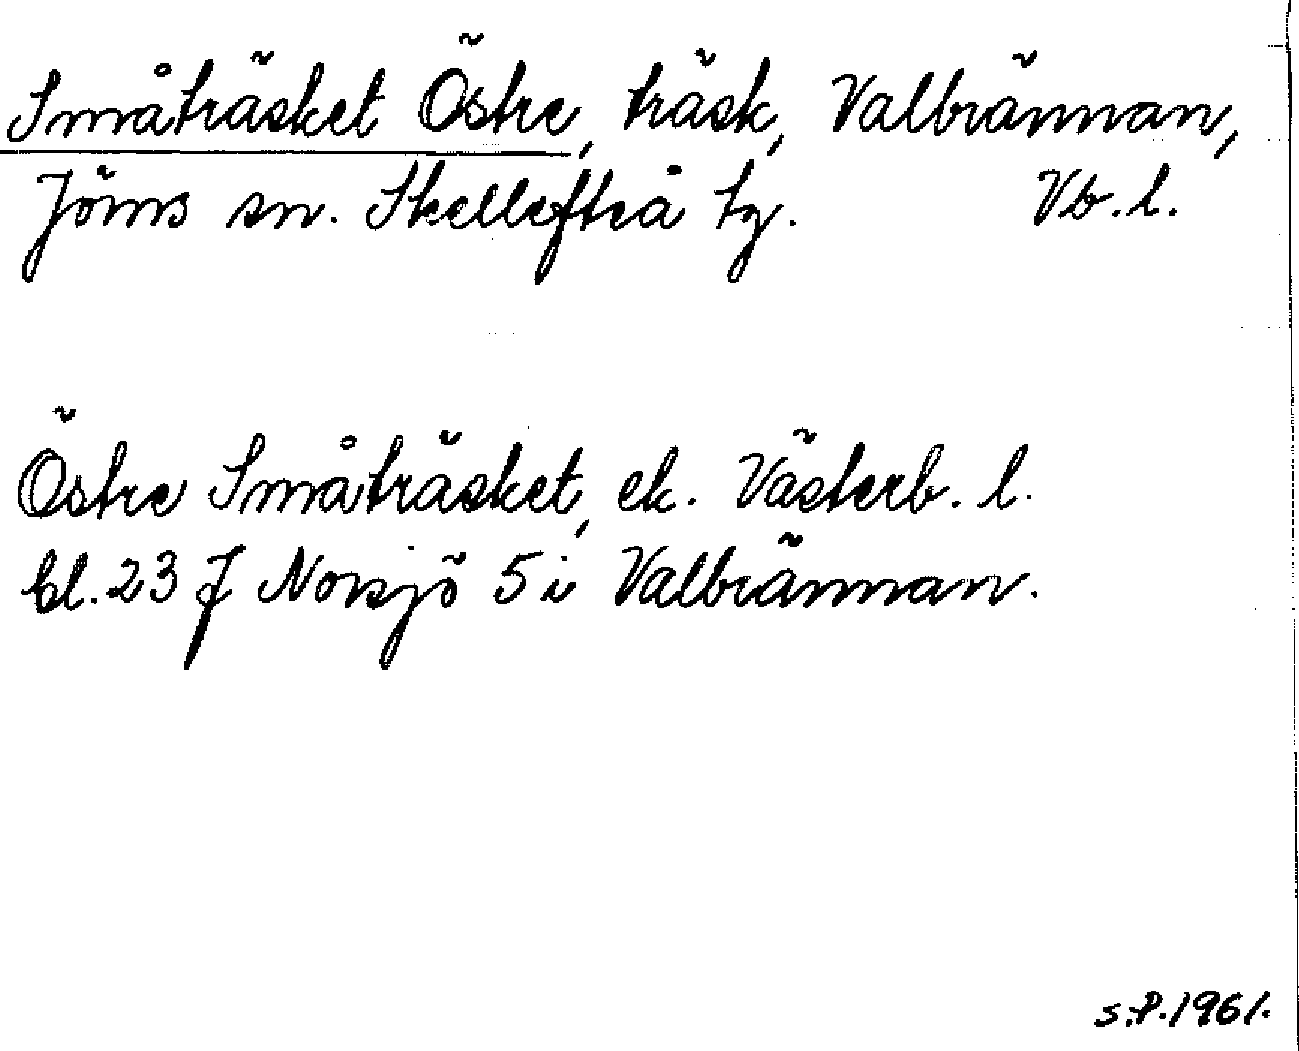 Småträsket Östre, träsk, Valbrännan,
Jörns sn. Skellefteå tg. Vb.l.
Östre Småträsket, ek. Västerb. l.
bl. 23 J Norsjö 5 i Valbrännan.
S.P. 1961.